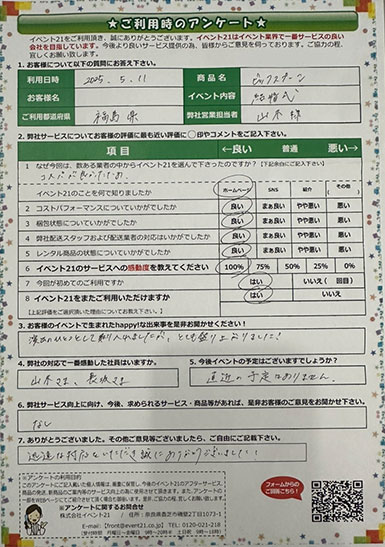 ★ご利用時のアンケート★
イベント21をご利用頂き、誠にありがとうございます。イベント21はイベント業界で一番サービスの良い
会社を目指しています。今後より良いサービス提供の為、皆様からご意見を伺っております。ご協力の程、
宜しくお願い致します。
1. お客様について以下の質問にお答え下さい。
利用日時 2025. 5. 11 商品名 ビックスプーン
お客様名 イベント内容 結婚式
ご利用都道府県 福島県 弊社営業担当者 山本様
2. 弊社サービスについてお客様の評価に最も近い評価に○印やコメントをご記入下さい。
項目 ←良い 普通 悪い→
1 なぜ今回は、数ある業者の中からイベント21を選んで下さったのですか？【下記余白にご記入下さい】
コスパが良かったため
イベント21のことを何で知りましたか ホームページ SNS 紹介 その他
2 コストパフォーマンスについていかがでしたか 良い まぁ良い やや悪い 悪い
3 梱包状態についていかがでしたか 良い まぁ良い やや悪い 悪い
4 弊社配送スタッフおよび配送業者の対応はいかがでしたか 良い まぁ良い やや悪い 悪い
5 レンタル商品の状態についていかがでしたか 良い まぁ良い やや悪い 悪い
6 イベント21のサービスへの感動度を教えてください 100% 75% 50% 25% 0%
7 今回が初めてのご利用ですか はい いいえ（ 回目）
8 イベント21をまたご利用いただけますか はい いいえ
【上記評価をご選択頂いた理由についてお教え下さい。】
3. お客様のイベントで生まれたhappy!な出来事を是非お聞かせください！
演出のひとつとして取り入れましたが、とても盛り上がりました！
4. 弊社の対応で一番感動した社員はいますか。
山本さま、長坂さま
5. 今後イベントの予定はございますでしょうか？
直近の予定はありません。
6. 弊社サービス向上に向け、今後、求められるサービス・商品等があれば、是非お客様のご意見をお聞かせ下さい。
なし
7. ありがとうございました。その他ご意見等ございましたら、ご自由にご記載下さい。
迅速な対応をいただき誠にありがとうございました！
※アンケートの利用目的
※アンケートに関するお問合せ
株式会社イベント21 / 住所：奈良県香芝市磯壁2丁目1073-1
E-mail：【front@event21.co.jp】 TEL：0120-021-218
フォームからの
ご回答はこちら！